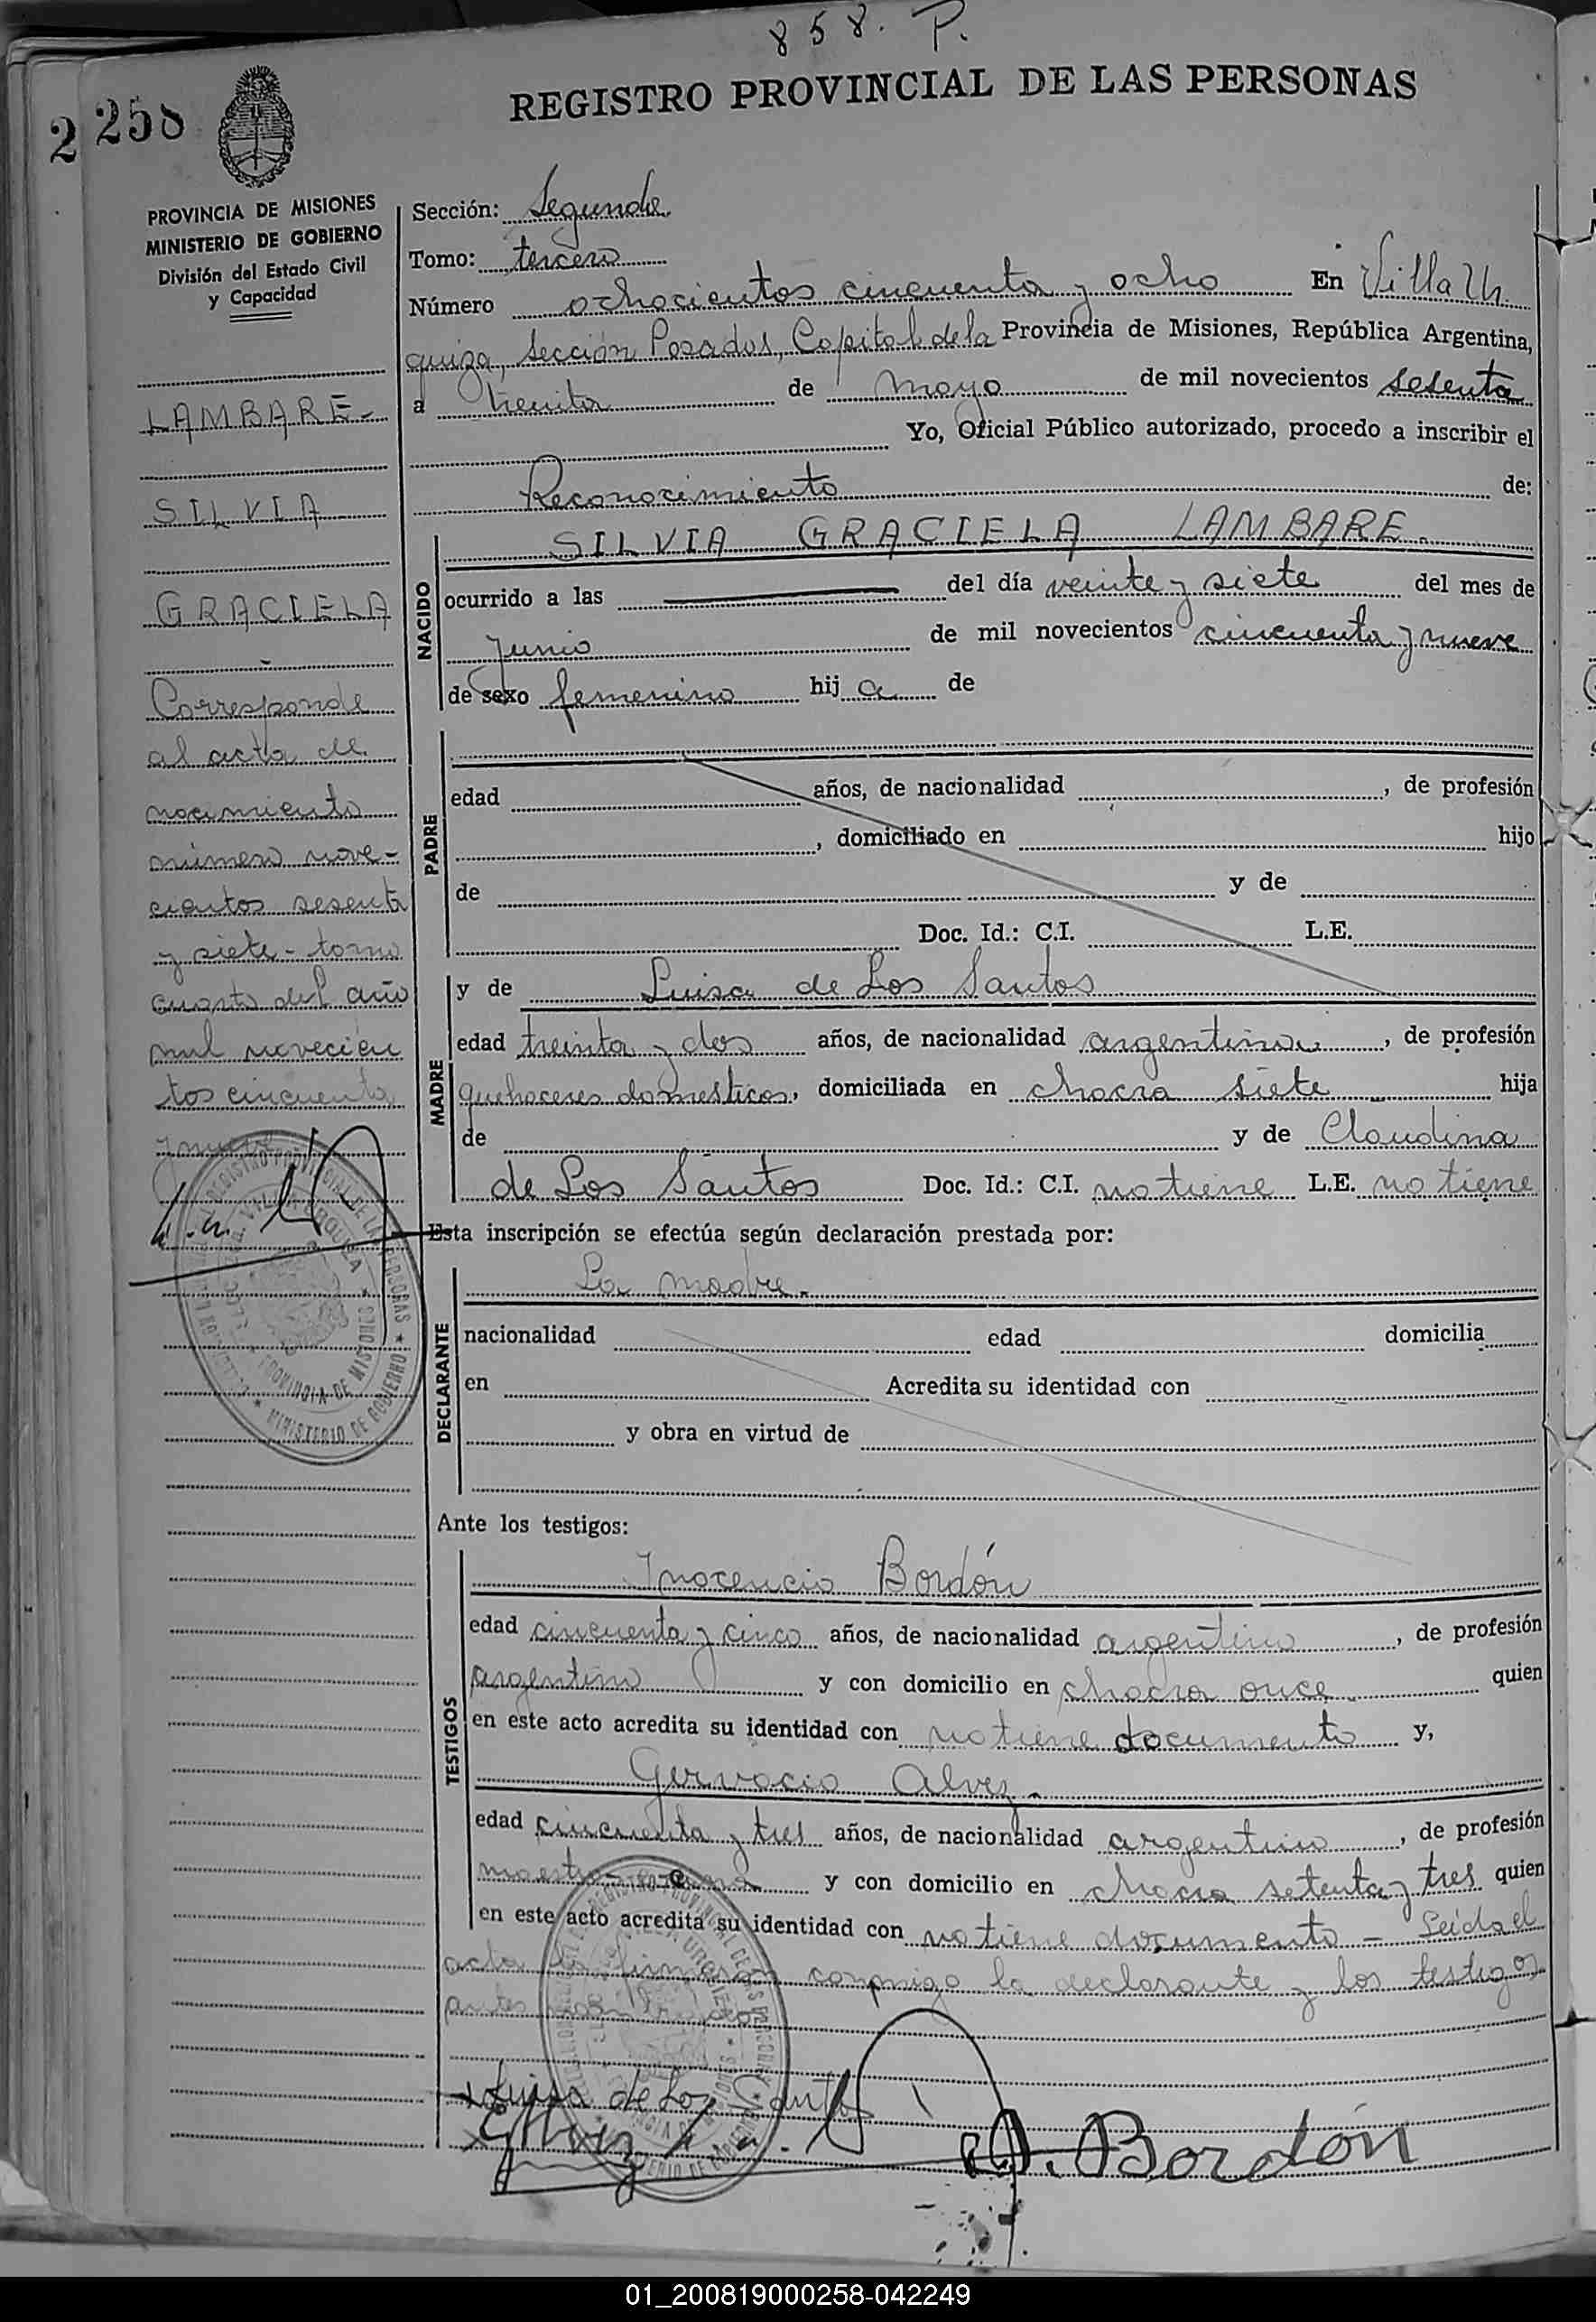 858. P.
2 258
REGISTRO PROVINCIAL DE LAS PERSONAS
PROVINCIA DE MISIONES
MINISTERIO DE GOBIERNO
División del Estado Civil
y Capacidad
LAMBARE-
SILVIA
GRACIELA
-
Corresponde
al acta de
nacimiento
número nove-
cientos sesenta
y siete - tomo
cuarto del año
mil novecien
tos cincuenta
y nueve
Sección: Segunda
Tomo: tercero
Número ochocientos cincuenta y ocho En Villa Ur
quiza, Sección Posadas, Capital de la Provincia de Misiones, República Argentina,
a treinta de mayo de mil novecientos sesenta
Yo, Oficial Público autorizado, procedo a inscribir el
Reconocimiento de:
NACIDO
SILVIA GRACIELA LAMBARE.
ocurrido a las del día veinte y siete del mes de
Junio de mil novecientos cincuenta y nueve
de sexo femenino hij a de
PADRE
edad años, de nacionalidad , de profesión
, domiciliado en hijo
de y de
Doc. Id.: C.I. L.E.
MADRE
y de Luisa de Los Santos
edad treinta y dos años, de nacionalidad argentina , de profesión
quehaceres domesticos, domiciliada en chacra siete hija
de y de Claudina
de Los Santos Doc. Id.: C.I. no tiene L.E. no tiene
Esta inscripción se efectúa según declaración prestada por:
DECLARANTE
La madre.
nacionalidad edad domicilia
en Acredita su identidad con
y obra en virtud de
Ante los testigos:
TESTIGOS
Inocencio Bordón
edad cincuenta y cinco años, de nacionalidad argentino , de profesión
argentino y con domicilio en chacra once quien
en este acto acredita su identidad con no tiene documento y,
Gervacio Alvez.
edad cincuenta y tres años, de nacionalidad argentino , de profesión
y con domicilio en chacra setenta y tres quien
en este acto acredita su identidad con no tiene documento - Leída el
acta la firmaron conmigo la declarante y los testigos
antes
Luisa de Los Santos
Bordón
01_200819000258-042249